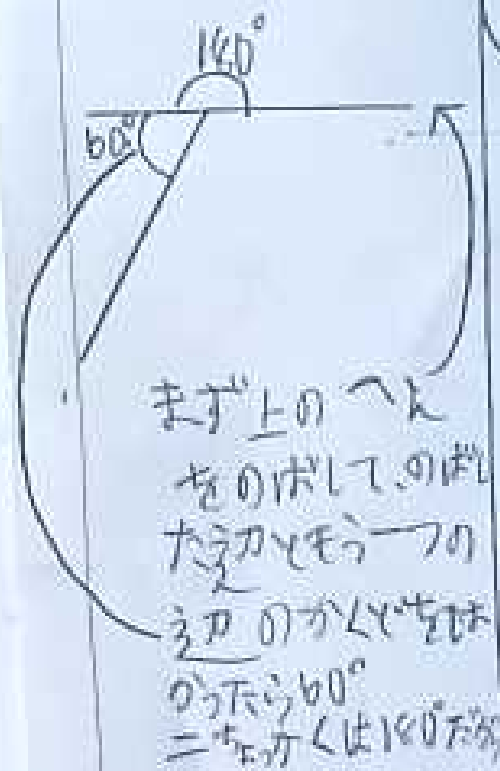 180°
60°
まず上のへん
をのばして、のばし
た辺と もう一つの
辺のかくどをはか
ったら60°
二ちょっかくは180°だから